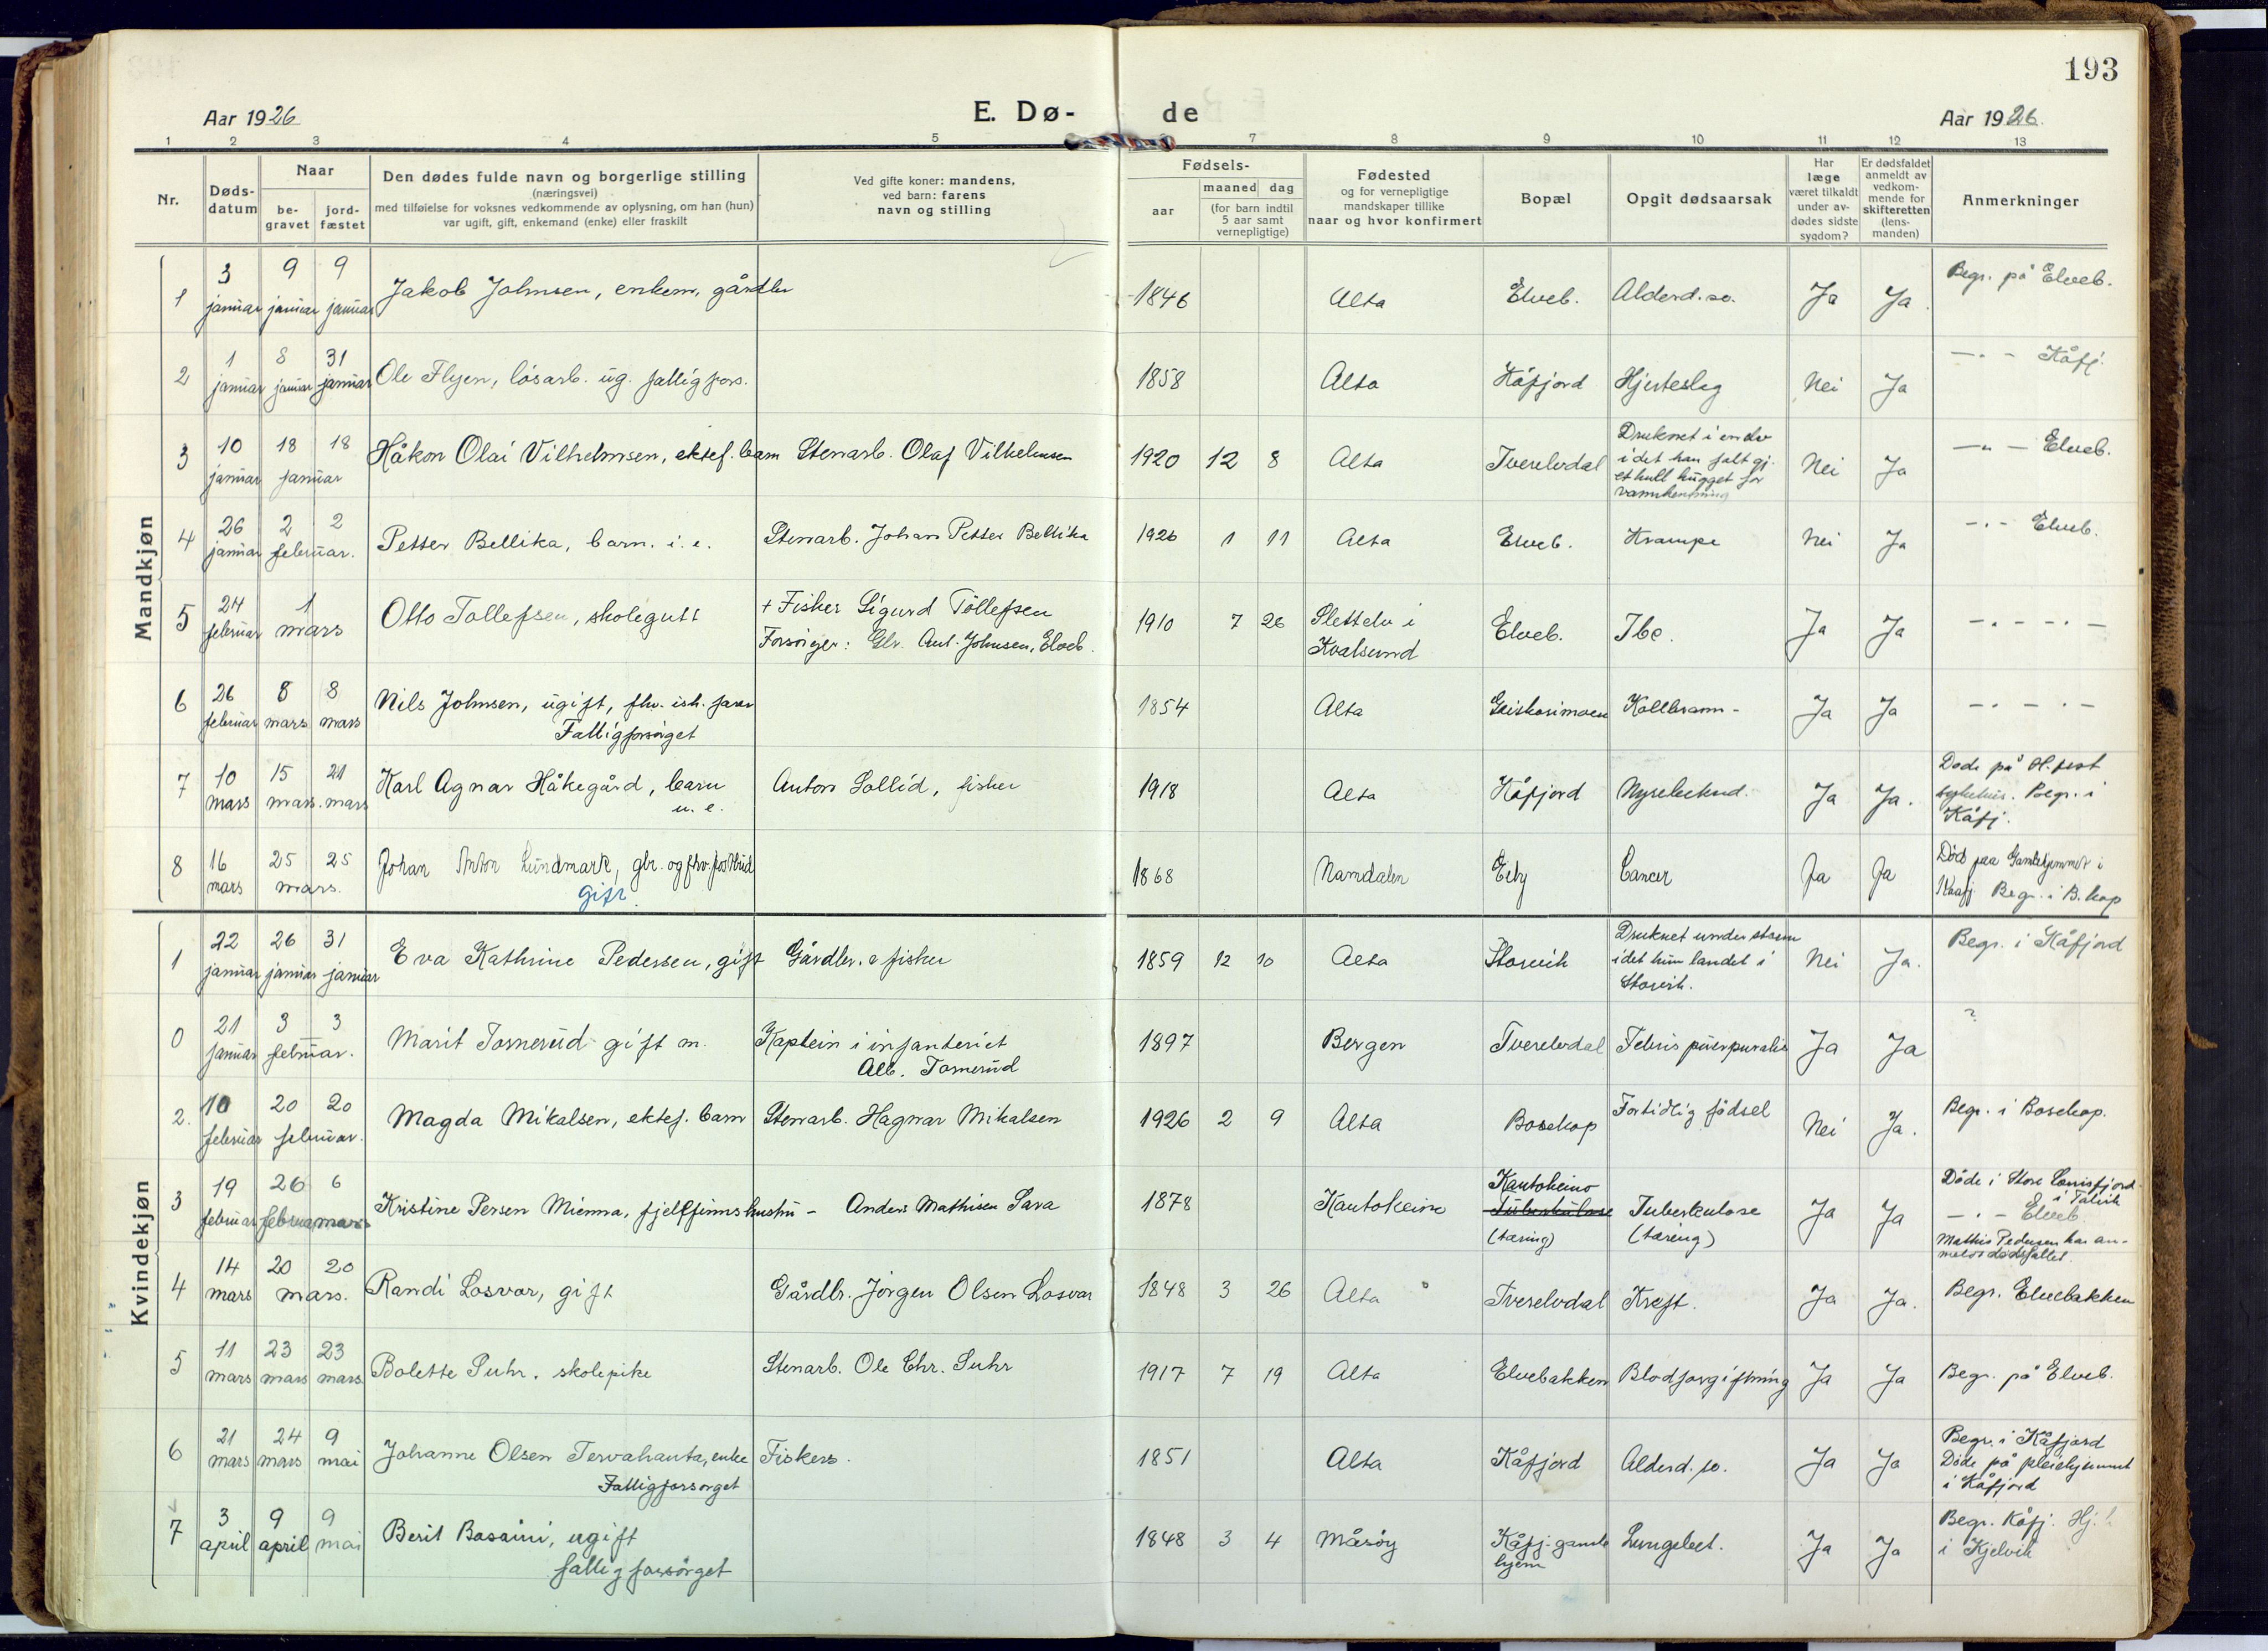 193
Aar 1926
E. Dø-
de
Aar 1926.
1 2 3 4 5 6 7 8 9 10 11 12 13
Nr.
Døds-
datum
Naar
be-
gravet
jord-
fæstet
Den dødes fulde navn og borgerlige stilling
(næringsvei)
med tilføielse for voksnes vedkommende av oplysning, om han (hun)
var ugift, gift, enkemand (enke) eller fraskilt
Ved gifte koner: mandens,
ved barn: farens
navn og stilling
Fødsels-
aar
maaned dag
(for barn indtil
5 aar samt
vernepligtige)
Fødested
og for vernepligtige
mandskaper tillike
naar og hvor konfirmert
Bopæl
Opgit dødsaarsak
Har
læge
været tilkaldt
under av-
dødes sidste
sygdom?
Er dødsfaldet
anmeldt av
vedkom-
mende for
skifteretten
(lens-
manden)
Anmerkninger
Mandkjøn
1 3 januar 9 januar 9 januar Jakob Johnsen, enkem, gårdbr 1846 Alta Elveb. Alderd.sv. Ja Ja. Begr. på Elveb.
2 1 januar 8 januar 31 januar Ole Flyen, løsarb. ug. fattigfors. 1858 Alta Kåfjord Hjerteslag Nei Ja —〃— Kåfj.
3 10 januar 18 18 januar Håkon Olai Vilhelmsen, ektef. barn Stenarb. Olaf Vilhelmsen 1920 12 8 Alta Tverelvdal Druknet i en elv
i det han falt gj.
et hull hugget for
vannhentning Nei Ja —〃— Elveb.
4 26 januar 2 2 februar. Petter Bellika, barn. i. e. Stenarb. Johan Petter Bellika 1926 1 11 Alta Elveb. Krampe Nei Ja —〃— Elveb.
5 24 februar 1 mars Otto Tollefsen, skolegutt + Fisker Sigurd Tollefsen
Forsørger: Gbr. Ant. Johnsen, Elveb. 1910 7 26 Slettelv i
Kvalsund Elveb. Tbc. Ja Ja —〃—〃—
6 26 februar 8 mars 8 mars Nils Johnsen, ugift, fhv. ish. farer
Fattigforsørget 1854 Alta Koldbrann- Ja Ja —〃—〃—
7 10 mars 15 mars. 21 mars Karl Agnar Håkegård, barn
u. e. Anton Sollid, fisker 1918 Alta Kåfjord Nyrebetend. Ja Ja. Døde på H.fest
sykehus. Begr. i
Kåfj.
8 16 mars 25 25 mars. Johan Anton Lundmark, gbr. og fhv. postbud
gift. 1868 Namdalen Eeby Cancer Ja Ja Død paa Gamlehjemmet i
Kaafj Begr. i B.kop
Kvindekjøn
1 22 januar 26 januar 31 januar Eva Kathrine Pedersen, gift Gårdbr. & fisker 1859 12 10 Alta Storvik Druknet under storm
idet hun landet i
Storvik. Nei Ja. Begr. i Kåfjord
0 21 januar 3 3 februar. Marit Tomerud gift m. Kaptein i infanteriet
Alb. Tomerud 1897 Bergen Tverelvdal Febris puerpuralis Ja Ja ?
2. 10 februar 20 20 februar. Magda Mikalsen, ektef. barn Stenarb. Hagnar Mikalsen 1926 2 9 Alta Bosekop Fortidlig fødsel Nei Ja. Begr. i Bosekop.
3 19 februar 26 februar 6 mars Kristine Persen Mienna, fjellfinns hustru - Anders Mathisen Sara 1878 Kautokeino Kautokeino
Tuberkulose
(tæring) Tuberkulose
(tæring) Ja Ja Døde i Store Lerrisfjord
i Talvik
—〃— Elveb.
Mathis Pedersen har an-
meldt dødsfallet.
4 14 mars 20 20 mars. Randi Losvar, gift Gårdbr. Jørgen Olsen Losvar 1848 3 26 Alta Tverelvdal Kreft. Ja Ja. Begr. Elvebakken
5 11 mars 23 mars 23 mars Bolette Suhr. skolepike Stenarb. Ole Chr. Suhr 1917 7 19 Alta Elvebakken Blodforgiftning Ja Ja Begr. på Elveb.
6 21 mars 24 mars 9 mai Johanne Olsen Tervahauta, enke
Fattigforsørget Fiskers. 1851 Alta Kåfjord Alderd. sv. Ja Ja Begr. i Kåfjord
Døde på pleiehjemmet
i Kåfjord
7 3 april 9 april 9 mai Berit Bosaini, ugift
fattigforsørget 1848 3 4 Måsøy Kåfj. gamle
hjem Lungebet. Ja Ja Begr. Kåfj. Hj.
i Kjelvik